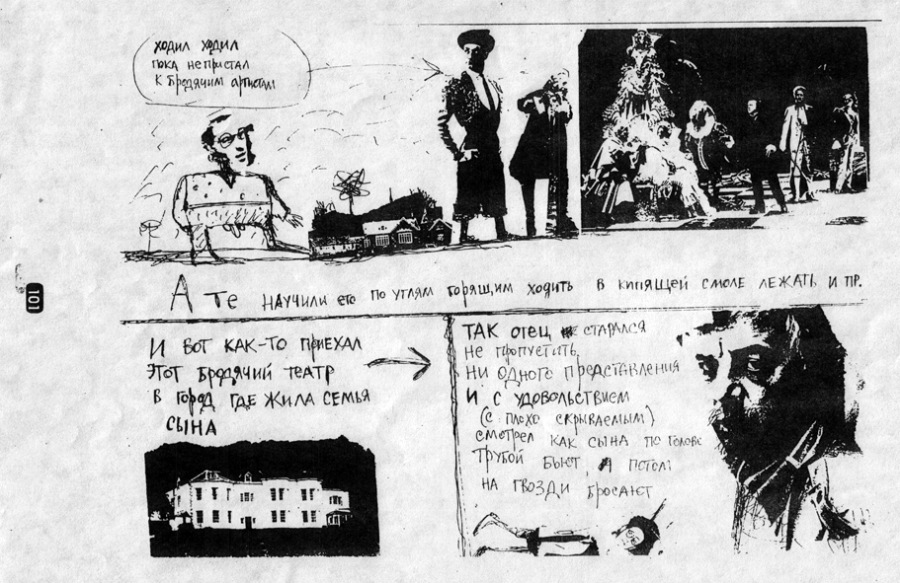 ХОДИЛ ХОДИЛ
ПОКА НЕ ПРИСТАЛ
К БРОДЯЧИМ АРТИСТАМ
А ТЕ НАУЧИЛИ ЕГО ПО УГЛЯМ ГОРЯЩИМ ХОДИТЬ В КИПЯЩЕЙ СМОЛЕ ЛЕЖАТЬ И ПР.
101
И ВОТ КАК-ТО ПРИЕХАЛ
ЭТОТ БРОДЯЧИЙ ТЕАТР
В ГОРОД ГДЕ ЖИЛА СЕМЬЯ
СЫНА
ТАК ОТЕЦ СТАРАЛСЯ
НЕ ПРОПУСТИТЬ
НИ ОДНОГО ПРЕДСТАВЛЕНИЯ
И С УДОВОЛЬСТВИЕМ
(С ПЛОХО СКРЫВАЕМЫМ)
СМОТРЕЛ КАК СЫНА ПО ГОЛОВЕ
ТРУБОЙ БЬЮТ, А ПОТОМ
НА ГВОЗДИ БРОСАЮТ